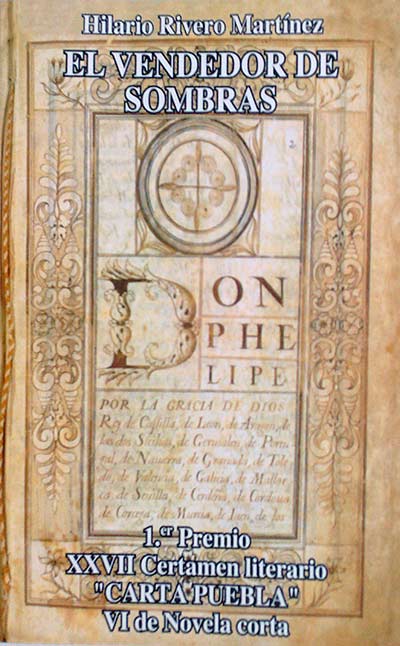 Hilario Rivero Martínez
EL VENDEDOR DE
SOMBRAS
2
DON
PHE
LIPE
POR LA GRACIA DE DIOS
Rey de Castilla, de Leon, de Aragon, de
las dos Sicilias, de Gerusalen, de Portu
gal, de Navarra, de Granada, de Tole
do, de Valencia, de Galicia, de Mallor
ca, de Sevilla, de Cerdeña, de Cordoua
de Corcega, de Murcia, de Iaen, de los
1.er Premio
XXVII Certamen literario
"CARTA PUEBLA"
VI de Novela corta